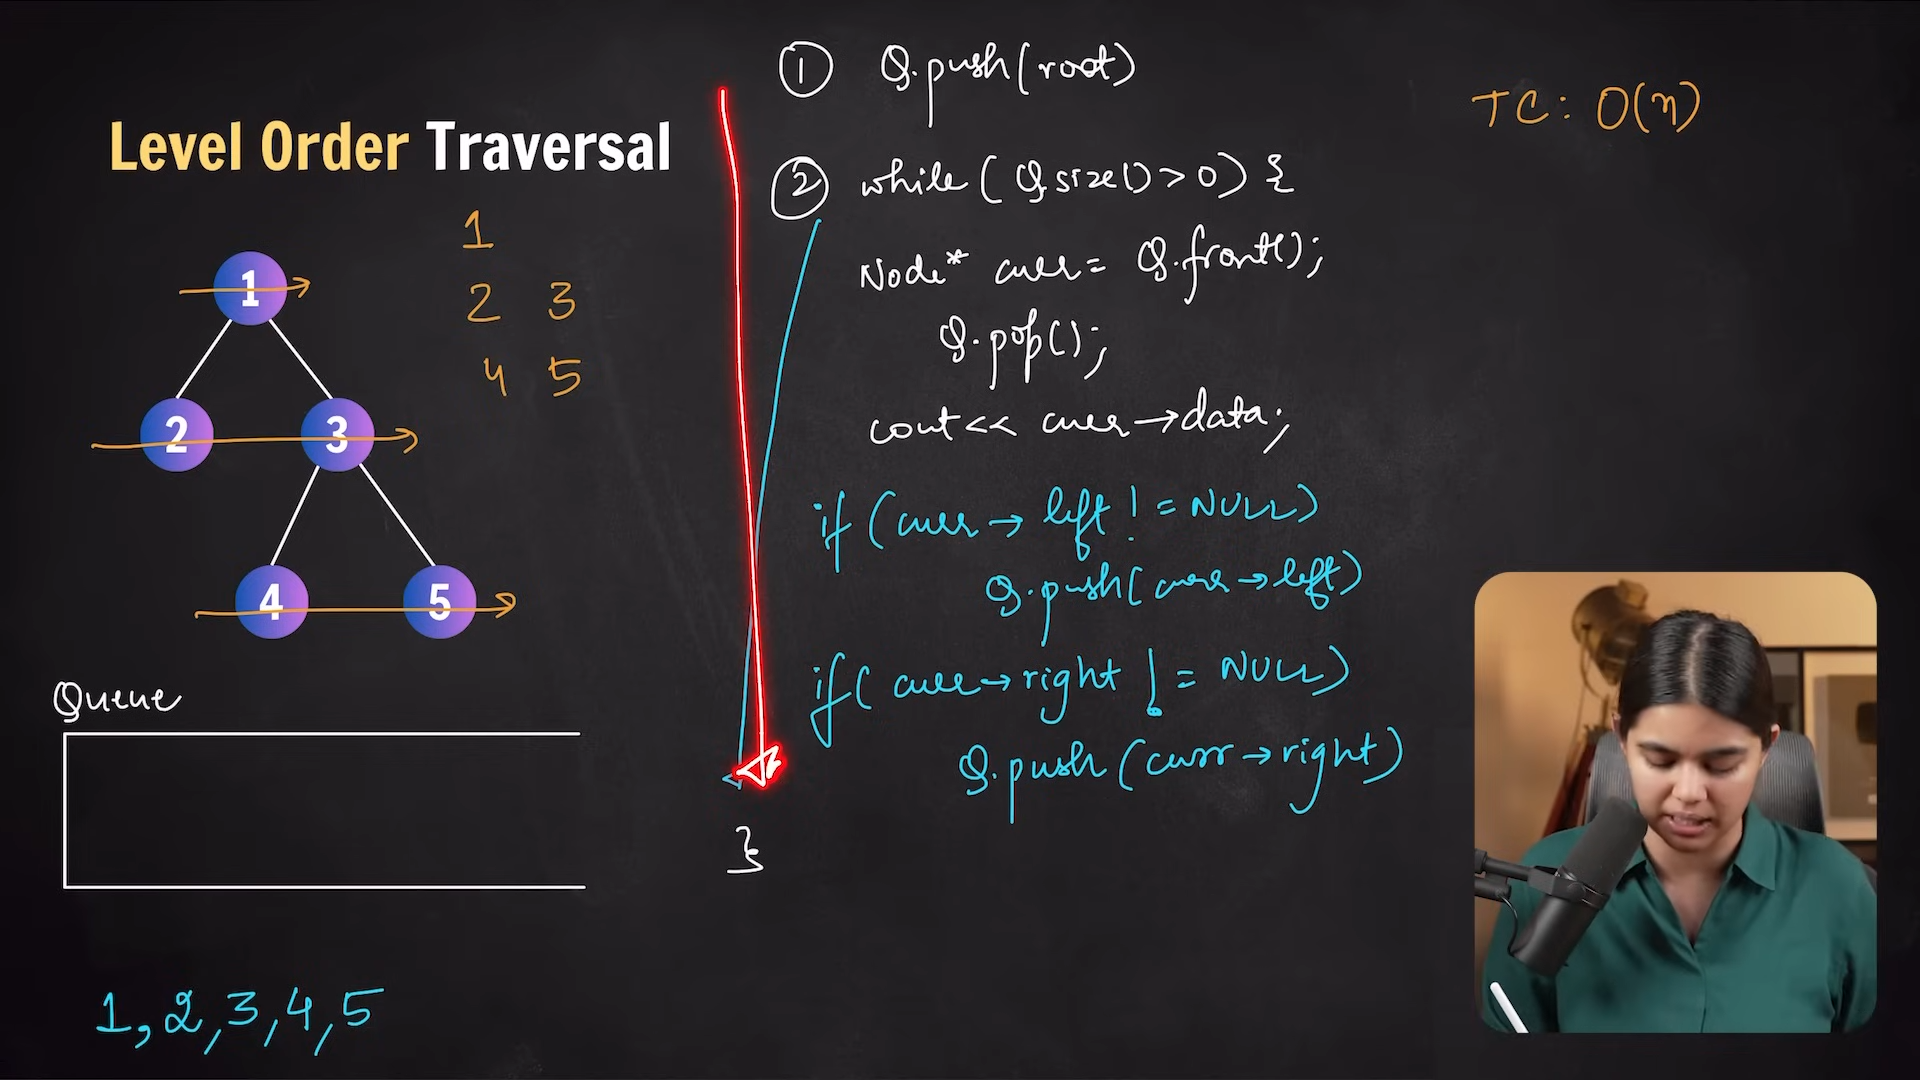 Level Order Traversal
1
2 3
4 5
1
2 3
4 5
Queue
1, 2, 3, 4, 5
① Q.push(root)
② while(Q.size()>0) {
Node* curr = Q.front();
Q.pop();
cout<< curr→data;
if(curr→left != NULL)
Q.push(curr→left)
if(curr→right != NULL)
Q.push(curr→right)
}
TC: O(n)